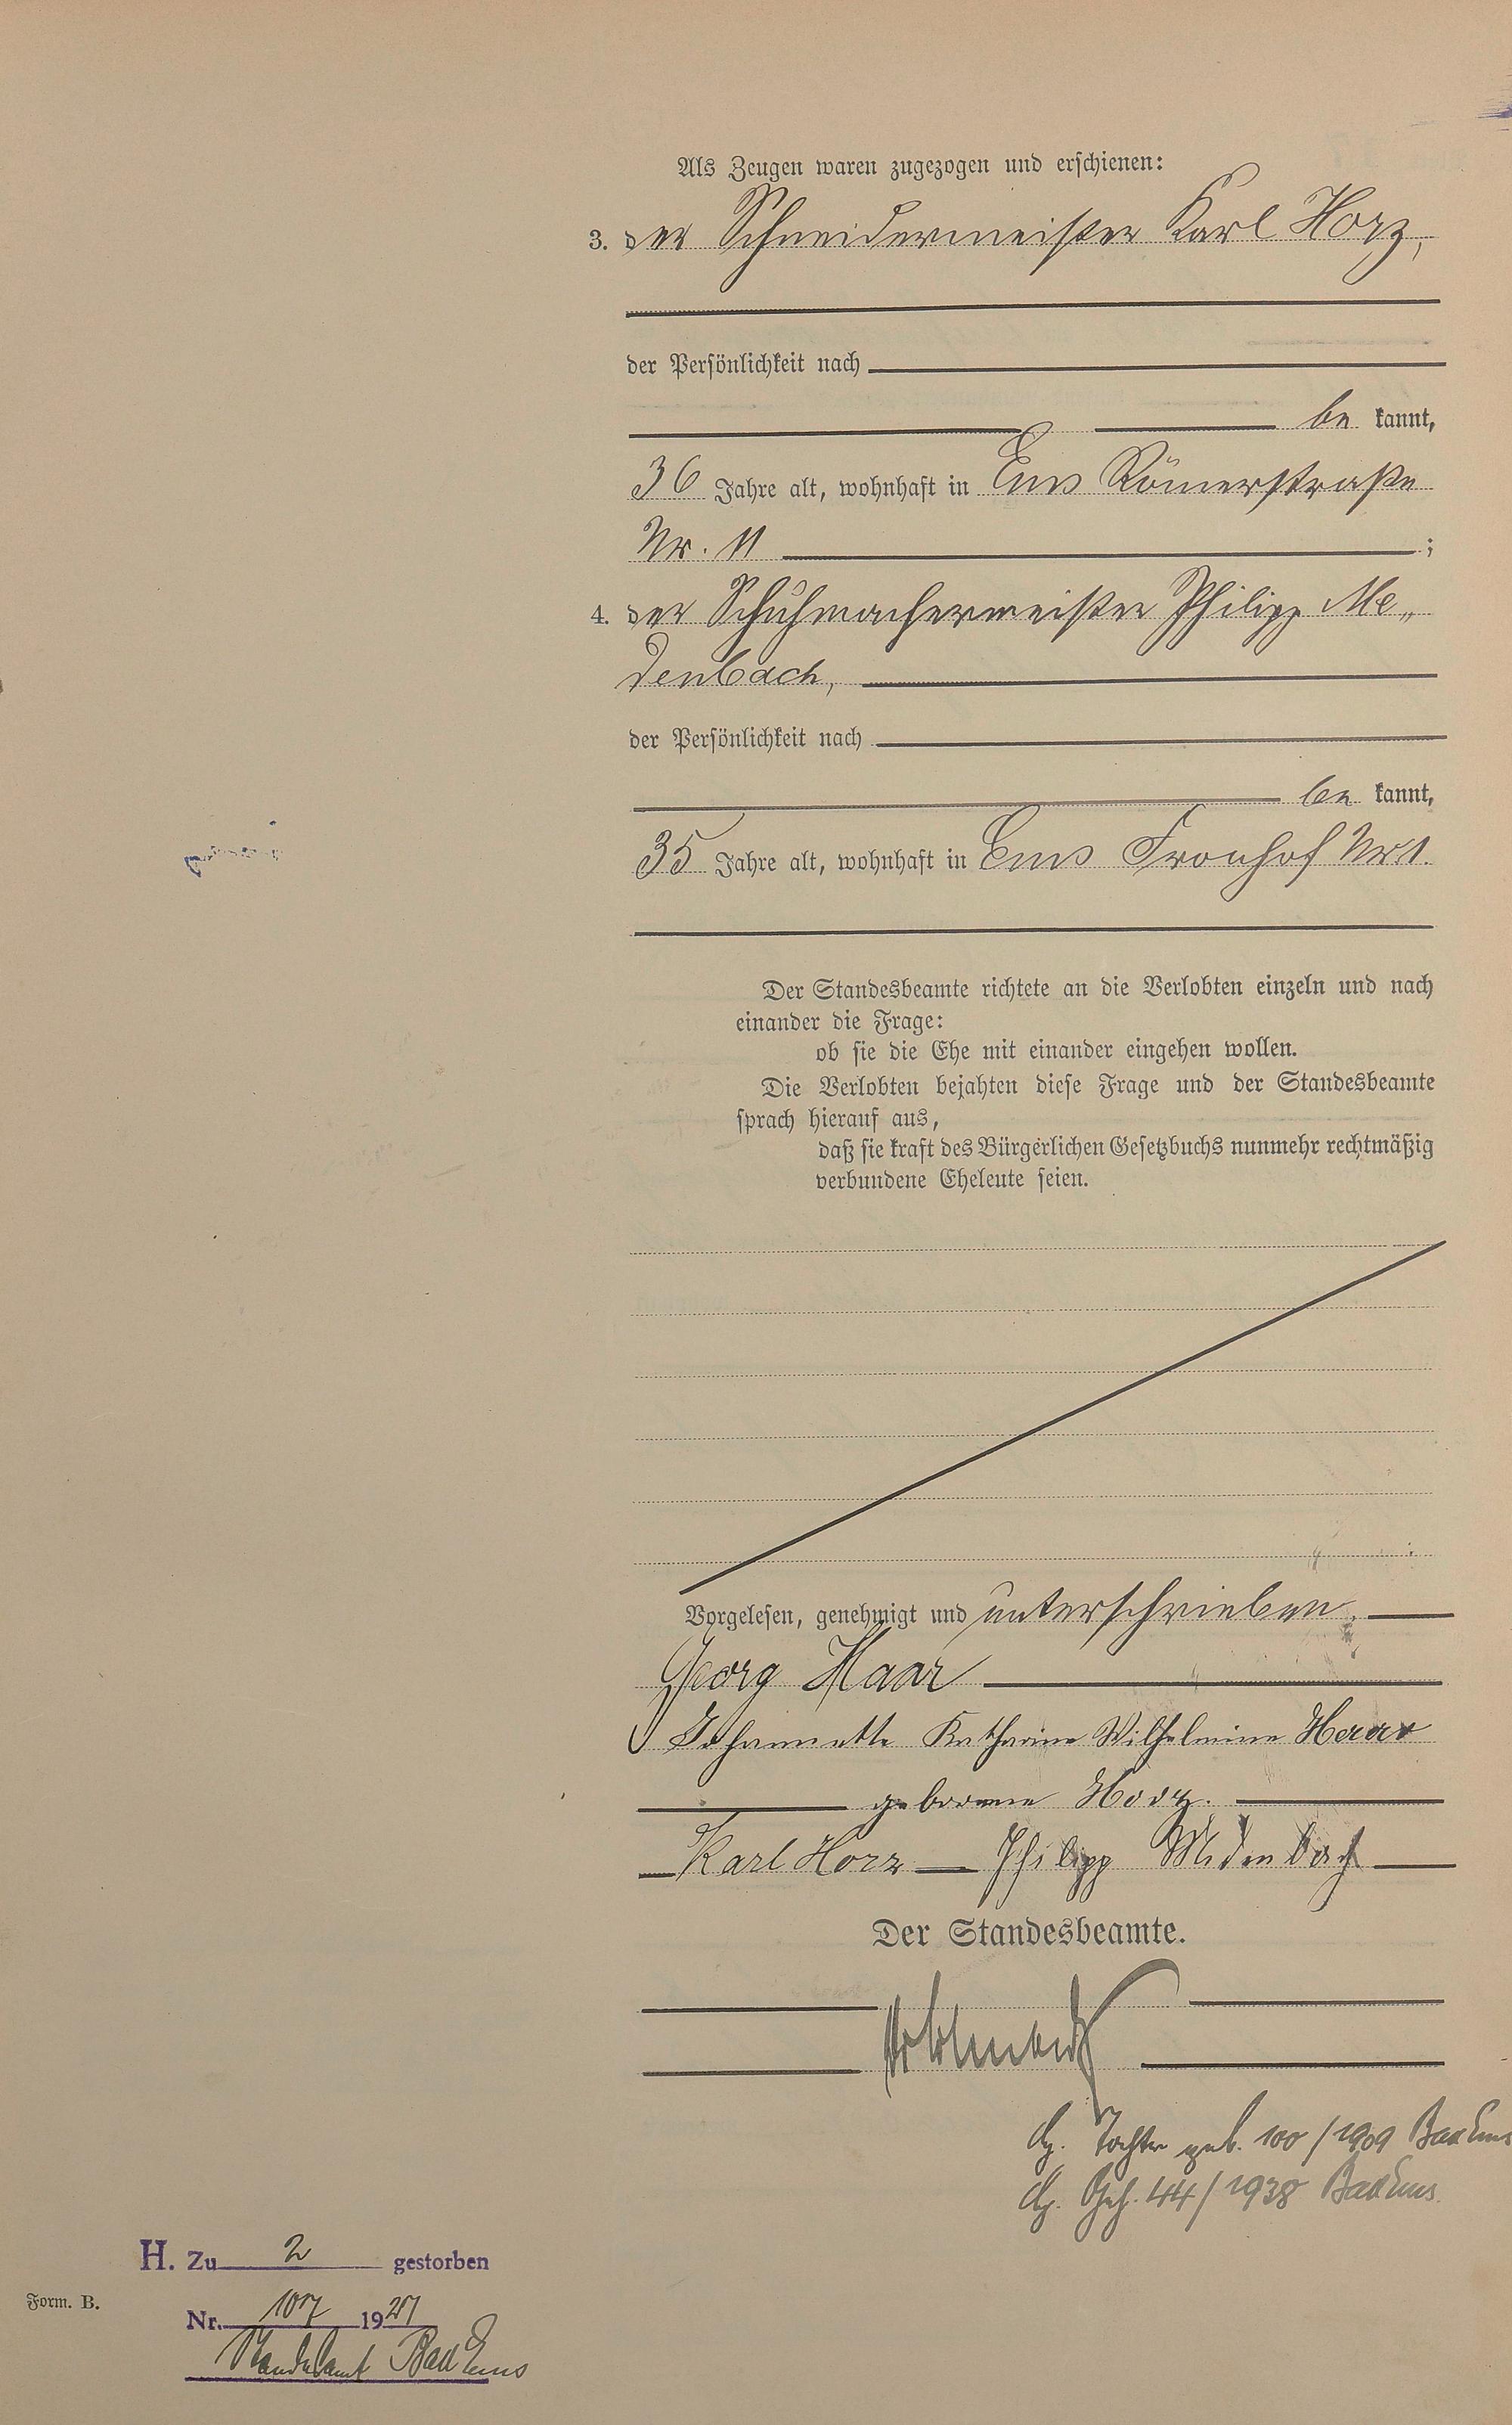 Als Zeugen waren zugezogen und erschienen:
3. der Schneidermeister Karl Horz,
der Persönlichkeit nach
be kannt,
36 Jahre alt, wohnhaft in Ems Römerstraße
Nr. 11 ;
4. der Schuhmachermeister Philipp Me„
denbach,
der Persönlichkeit nach
be kannt,
35 Jahre alt, wohnhaft in Ems Fronhof Nr 1.
Der Standesbeamte richtete an die Verlobten einzeln und nach
einander die Frage:
ob sie die Ehe mit einander eingehen wollen.
Die Verlobten bejahten diese Frage und der Standesbeamte
sprach hierauf aus,
daß sie kraft des Bürgerlichen Gesetzbuchs nunmehr rechtmäßig
verbundene Eheleute seien.
Vorgelesen, genehmigt und unterschrieben.
Georg Haar
Johannette Katharine Wilhelmine Haar
geborene Horz.
Karl Horz Philipp Medenbach
Der Standesbeamte.
Tochter geb. 100/1909 Bad Ems
44/1938 Bad Ems.
H. Zu 2 gestorben
Form. B.
Nr. 107 19
Standesamt Bad Ems